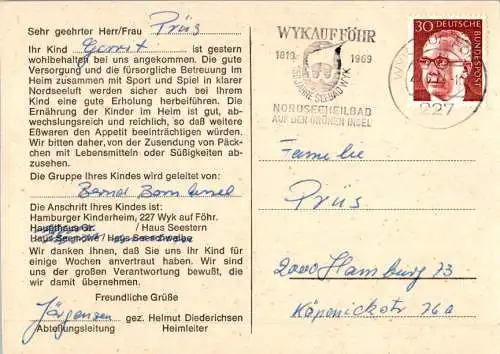 Sehr geehrter Herr/Frau Prüs
Ihr Kind Gerrit ist gestern
wohlbehalten bei uns angekommen. Die gute
Versorgung und die fürsorgliche Betreuung im
Heim zusammen mit Sport und Spiel in klarer
Nordseeluft werden sicher auch bei Ihrem
Kind eine gute Erholung herbeiführen. Die
Ernährung der Kinder im Heim ist gut, ab-
wechslungsreich und reichlich, so daß weitere
Eßwaren den Appetit beeinträchtigen würden.
Wir bitten daher, von der Zusendung von Päck-
chen mit Lebensmitteln oder Süßigkeiten ab-
zusehen.
Die Gruppe Ihres Kindes wird geleitet von:
Bernd
Die Anschrift Ihres Kindes ist:
Hamburger Kinderheim, 227 Wyk auf Föhr.
Haupthaus Gr. / Haus Seestern
Haus Seemöwe / Haus Seeschwalbe
Wir danken Ihnen, daß Sie uns Ihr Kind für
einige Wochen anvertraut haben. Wir sind
uns der großen Verantwortung bewußt, die
wir damit übernehmen.
Freundliche Grüße
Jörgensen gez. Helmut Diederichsen
Abteilungsleitung Heimleiter
WYK AUF FÖHR
1819 1969
150 JAHRE SEEBAD WYK
NORDSEEHEILBAD
AUF DER GRÜNEN INSEL
WYK
227
30 DEUTSCHE
BUNDESPOST
Familie
Prüs
2000 Hamburg 73
Köpenickstr 76a